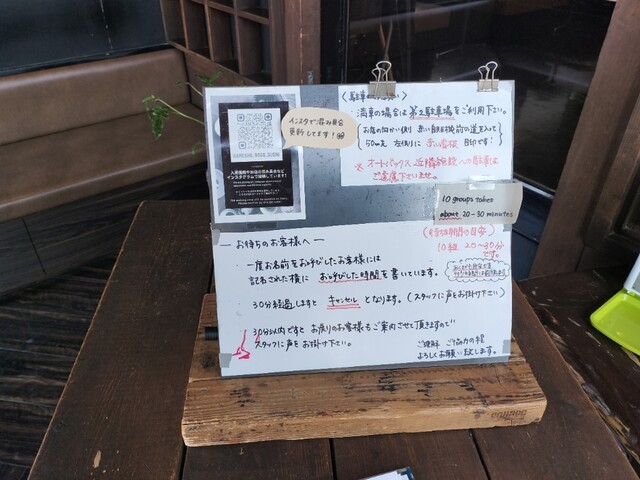 インスタで混み具合
更新してます!
満車の場合は 第2駐車場をご利用下さい。
お店の向かい側 赤い自販機前の道を入って
50m先 左側に 赤い看板 目印です!
※ オートバックス 近隣施設への駐車は
ご遠慮下さいませ。
10 groups takes
about 20-30 minutes
(待ち時間の目安)
10組 20〜30分
です。
― お待ちのお客様へ ―
一度お名前をお呼びしたお客様には
記名された横に お呼びした時間を書いています。
30分経過しますと キャンセル となります。(スタッフに声をお掛け下さい)
30分以内ですと お戻りのお客様もご案内させて頂きますので
スタッフに声をお掛け下さい。
ご理解 ご協力の程
よろしくお願い致します。